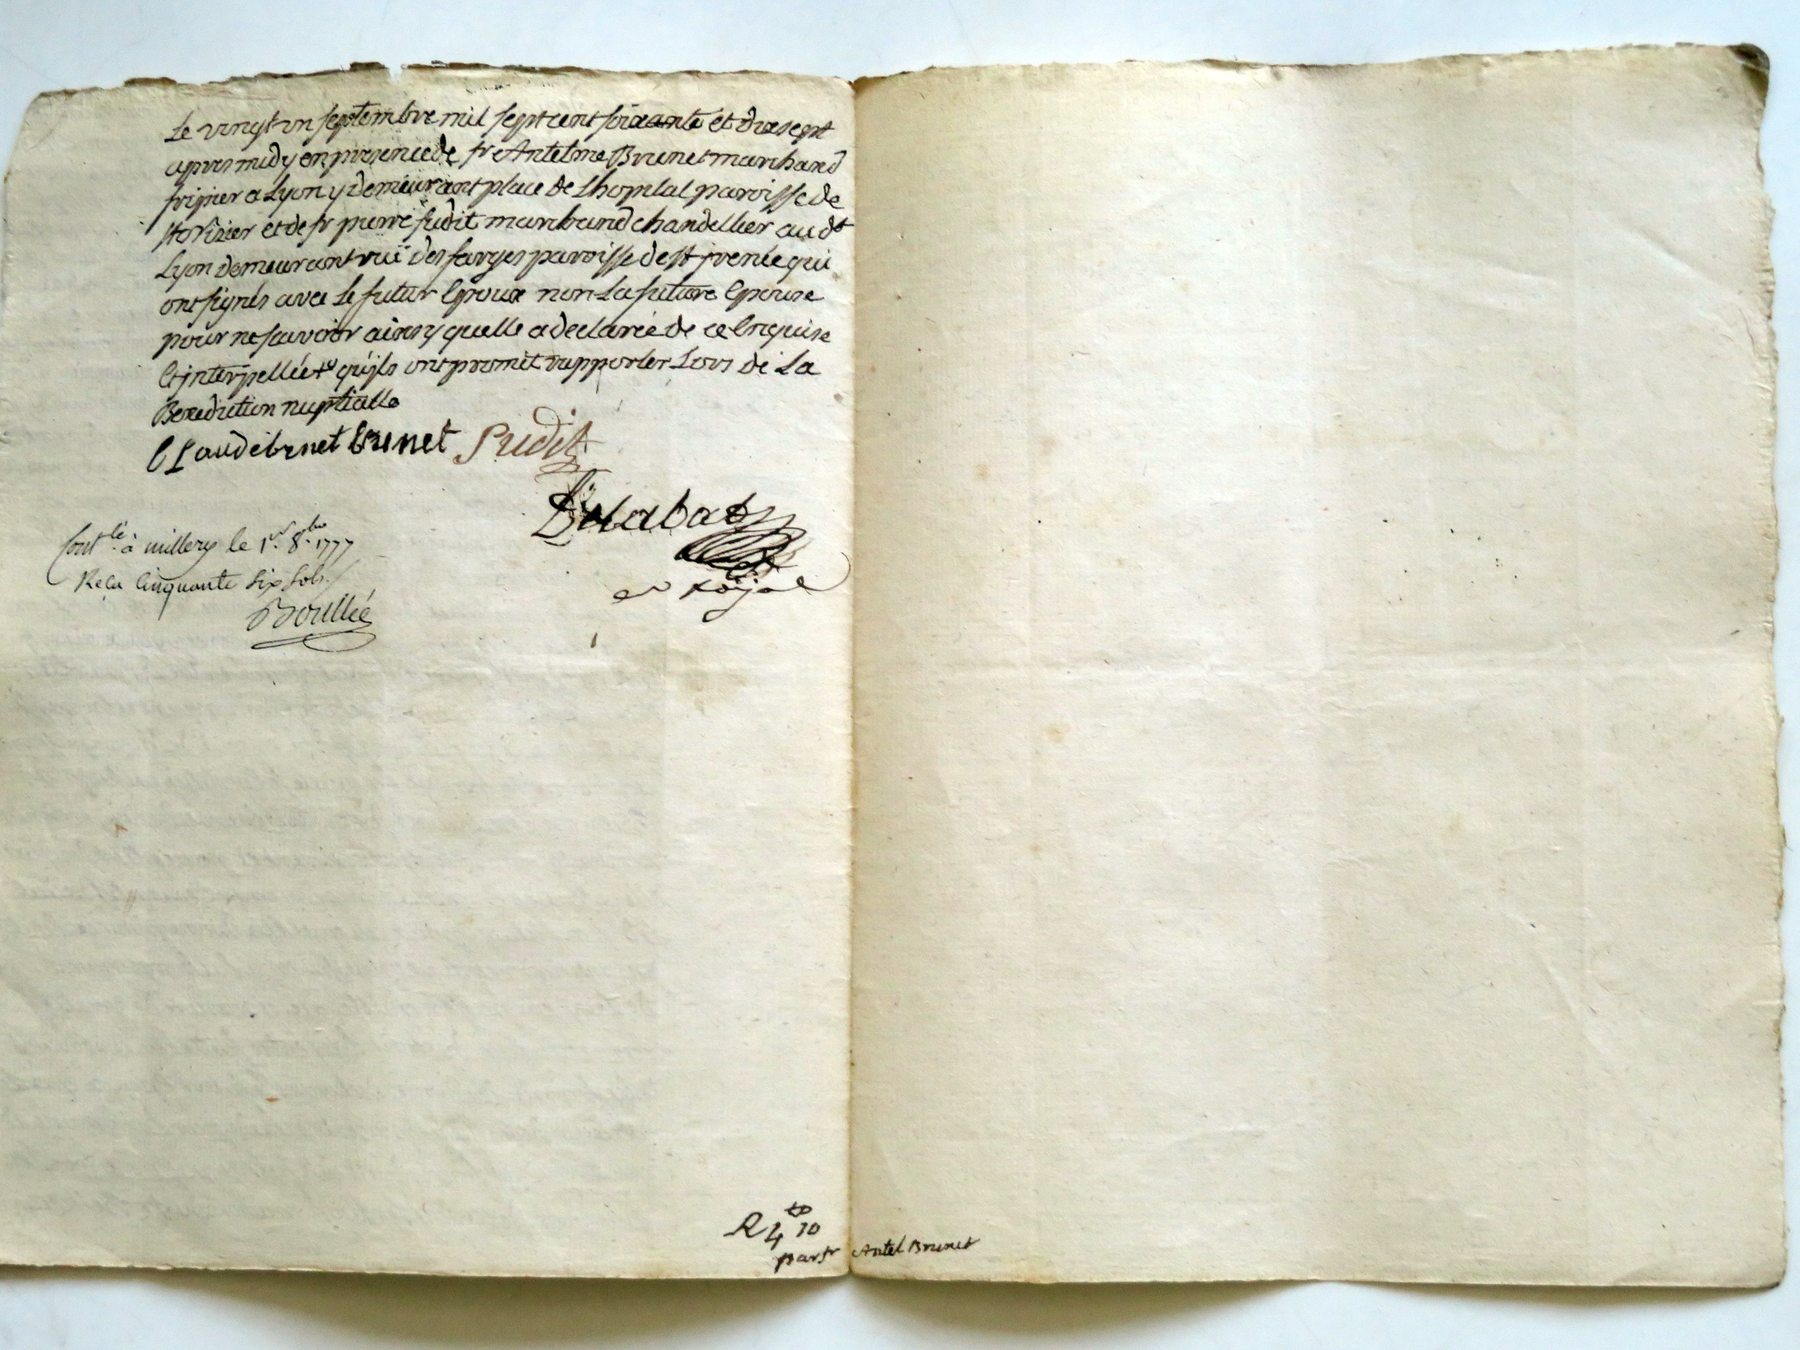 Le vingt un septembre mil sept cent soixante et dix sept
apres midy en presence de sr Antelme Brunet marchand
fripier a Lyon y demeurant place de Lhopital paroisse de
st Nizier et de sr pierre judit marchand chandellier au dt
Lyon demeurant ruë des farges paroisse de st jrenée qui
ont signés avec Le futur Epoux non La future Epouse
pour ne scavoir ainsy quelle a declarée de ce Enquise
Et jnterpellée qu'ils ont promit rapporter Lors de La
Benediction nuptialle
Claude brnet brunet Judit
Delabat
Contlé à millery le 1er 8bre 1777
Reçu Cinquante Six Sols
Boullée
R 4 10
par sr Antel Brunet